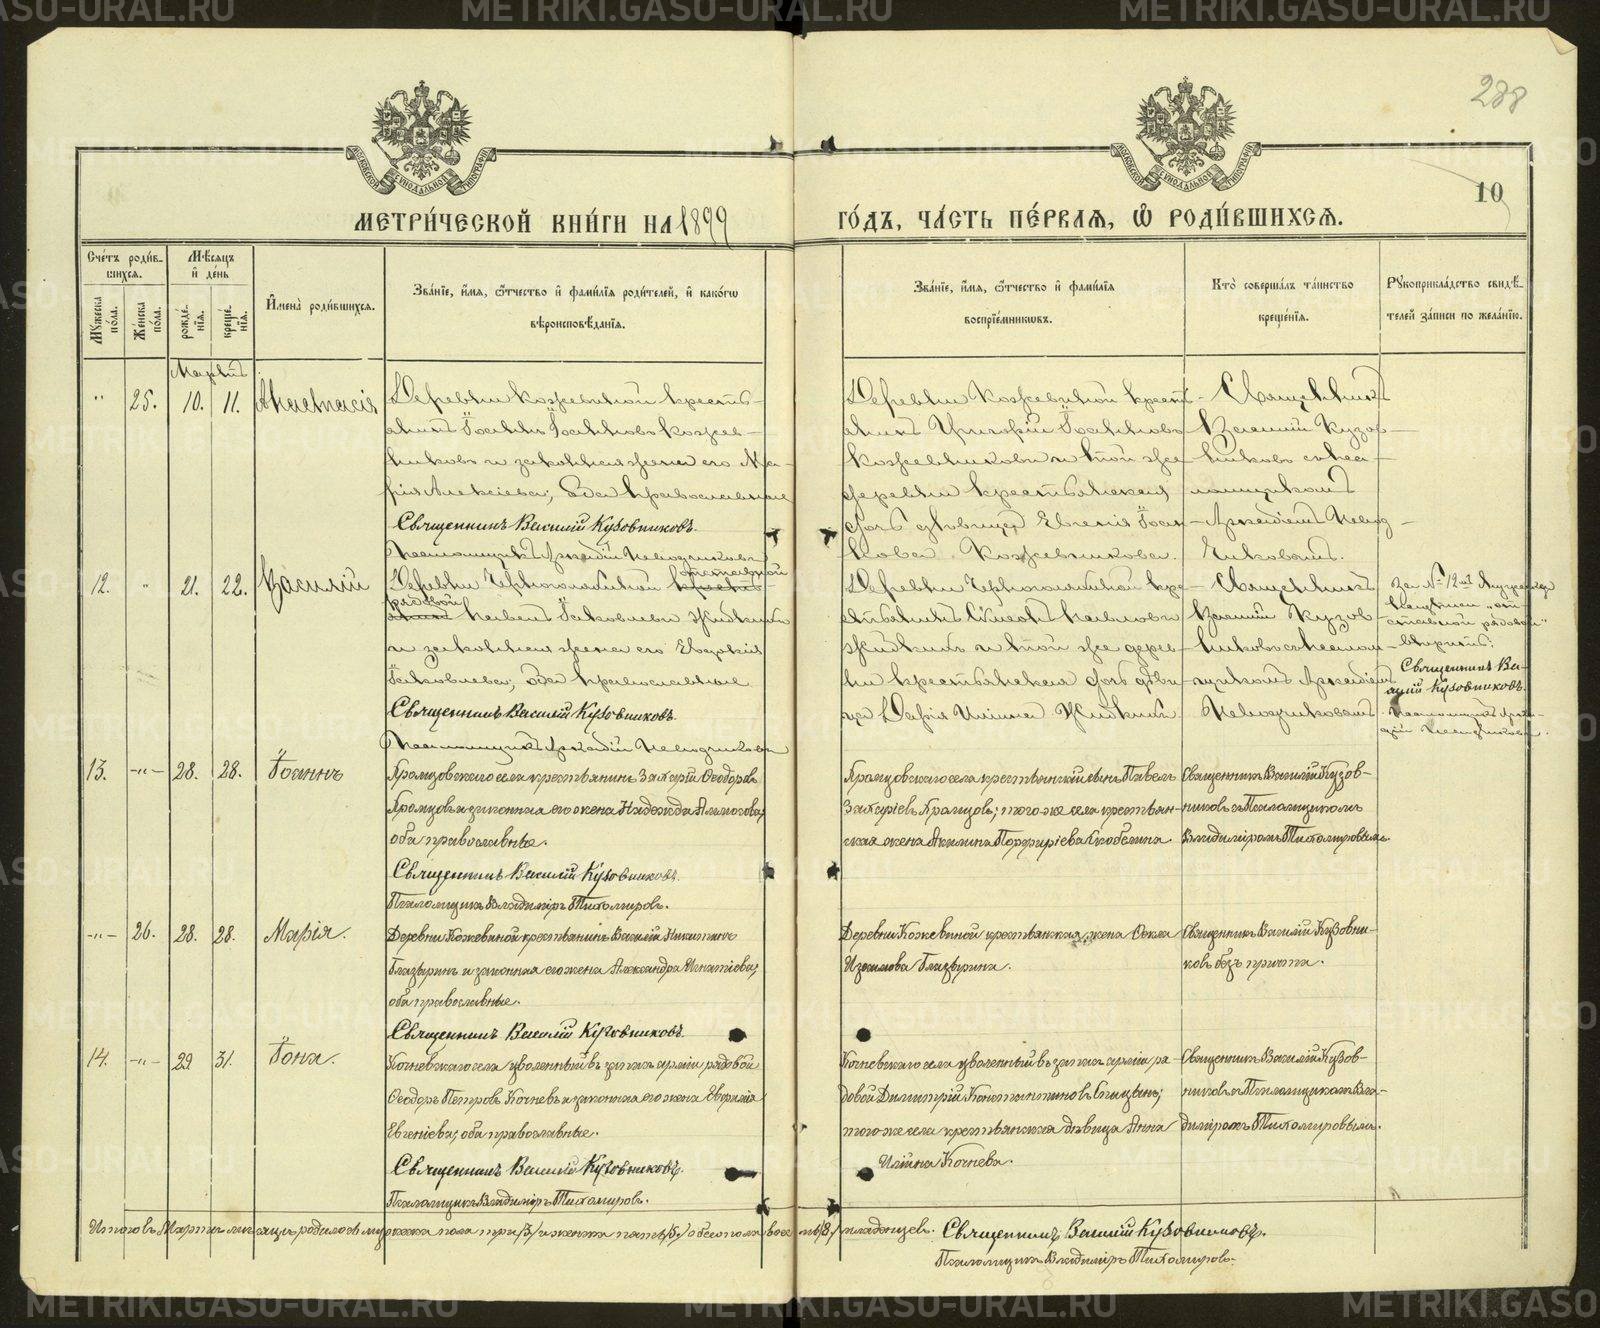 238
10
МЕТРИ́ЧЕСКОЙ КНИ́ГИ НА 1899
ГО́ДЪ, ЧА́СТЬ ПЕ́РВАЯ, Ѡ҆ РОДИ́ВШИХСЯ.
Сче́тъ роди́вшихся.
Мꙋ́жеска по́ла.
Же́нска по́ла.
Мѣ́сяцъ и҆ де́нь
рожде́нїя.
креще́нїя.
И҆мена̀ роди́вшихся.
Зва́нїе, и҆́мя, ѻ҆́тчество и҆ фами́лїя роди́телей, и҆ како́гѡ
вѣроисповѣ́данїя.
Зва́нїе, и҆́мя, ѻ҆́тчество и҆ фами́лїя
воспрїе́мникѡвъ.
Кто̀ соверша́лъ та́инство
креще́нїя.
Рꙋкоприкла́дство свидѣ́телей за́писи по жела́нїю.
Мартъ
" 25. 10. 11. Анастасія
Деревни Кожевиной крестьянинъ Іоаннъ Іоанновъ Кожев-
никовъ и законная жена его Ма-
рія Алексіева; оба православные
Священникъ Василій Кузовниковъ.
Псаломщикъ Аркадій
Деревни Кожевиной крестьянинъ Григорій Іоанновъ
Кожевниковъ и той же
деревни крестьянская
дочь дѣвица Евгенія Іоан-
нова Кожевникова.
Священникъ
Василій Кузов-
никовъ съ псаломщикомъ
Аркадіемъ
12. " 21. 22. Василій
отставной
рядовой Павелъ Іаковлевъ Жидкихъ
и законная жена его Евдокія
Іаковлева; оба православные
Священникъ Василій Кузовниковъ.
Псаломщикъ Аркадій
Жидкихъ и той же дерев-
ни крестьянская дочь дѣви-
ца Дарія Жидкихъ
Священникъ
Василій Кузов-
никовъ съ псалом-
щикомъ Аркадіемъ
"от-
ставной рядовой"
вѣрить:
Священникъ Ва-
силій Кузовниковъ.
Псаломщикъ Арка-
дій
13. -"- 28. 28. Іоаннъ
села крестьянинъ Захарій Ѳеодоровъ
и законная его жена Надежда
оба православные.
Священникъ Василій Кузовниковъ.
Псаломщикъ Владиміръ Тихомировъ.
села крестьянскій сынъ Павелъ
Захаріевъ; того же села крестьян-
ская жена Акилина Порфиріева Скобелина
Священникъ Василій Кузов-
никовъ съ Псаломщикомъ
Владиміромъ Тихомировымъ
-"- 26. 28. 28. Марія.
Деревни Кожевиной крестьянинъ Василій Никитинъ
Глазыринъ и законная его жена Александра Игнатіева;
оба православные.
Священникъ Василій Кузовниковъ.
Деревни Кожевиной крестьянская жена Ѳекла
Глазырина.
Священникъ Василій Кузовни-
ковъ безъ причта.
14. -"- 29 31. Іона.
Кочневскаго села уволенный въ запасъ арміи рядовой
Ѳеодоръ Петровъ Кочневъ и законная его жена Евфимія
Евгеніева; оба православные.
Священникъ Василій Кузовниковъ.
Псаломщикъ Владиміръ Тихомировъ.
Кочневскаго села уволенный въ запасъ арміи ря-
довой Димитрій Константиновъ Спицынъ;
того же села крестьянская дѣвица Анна
Кочнева.
Священникъ Василій Кузов-
никовъ съ Псаломщикомъ Вла-
диміромъ Тихомировымъ.
Итого въ Мартѣ мѣсяцѣ родилось мужеска пола три /3/ и женска пять /5/, обоего пола восемь /8/ младенцевъ. Священникъ Василій Кузовниковъ.
Псаломщикъ Владиміръ Тихомировъ.
METRIKI.GASO-URAL.RU